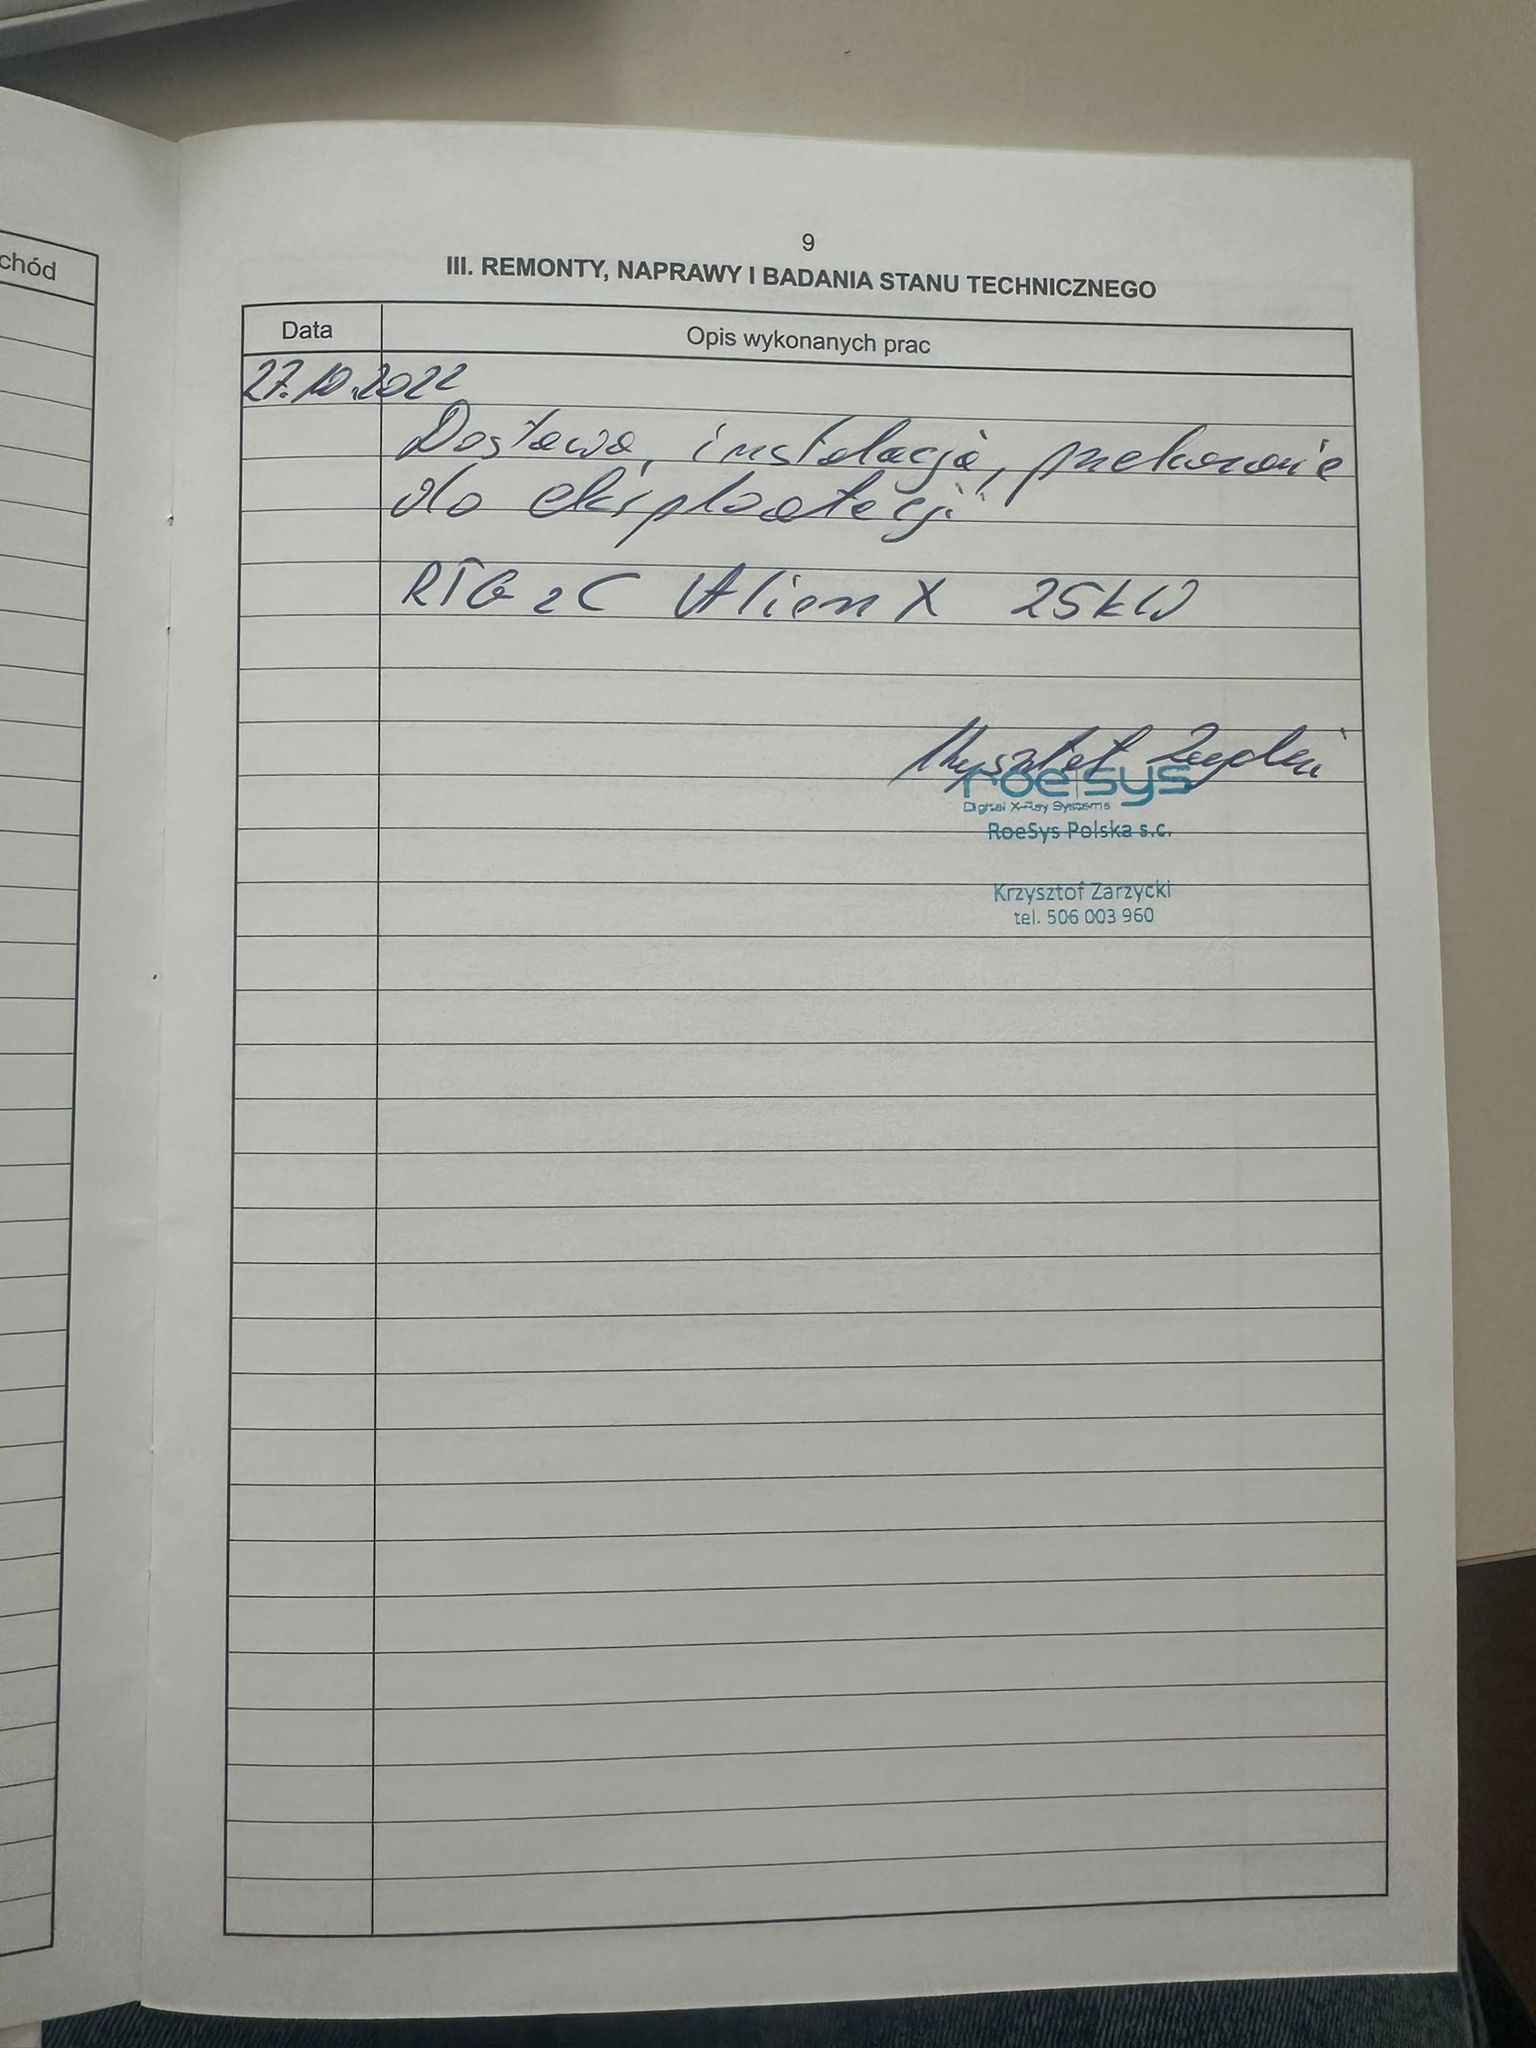 chód
9
III. REMONTY, NAPRAWY I BADANIA STANU TECHNICZNEGO
Data
Opis wykonanych prac
27.10.2022
Dostawa, instalacja, przekazanie
do eksploatacji
RTG z C Alien X 25kW
Krzysztof Zarzycki
roe sys
Digital X-Ray Systems
RoeSys Polska s.c.
Krzysztof Zarzycki
tel. 506 003 960